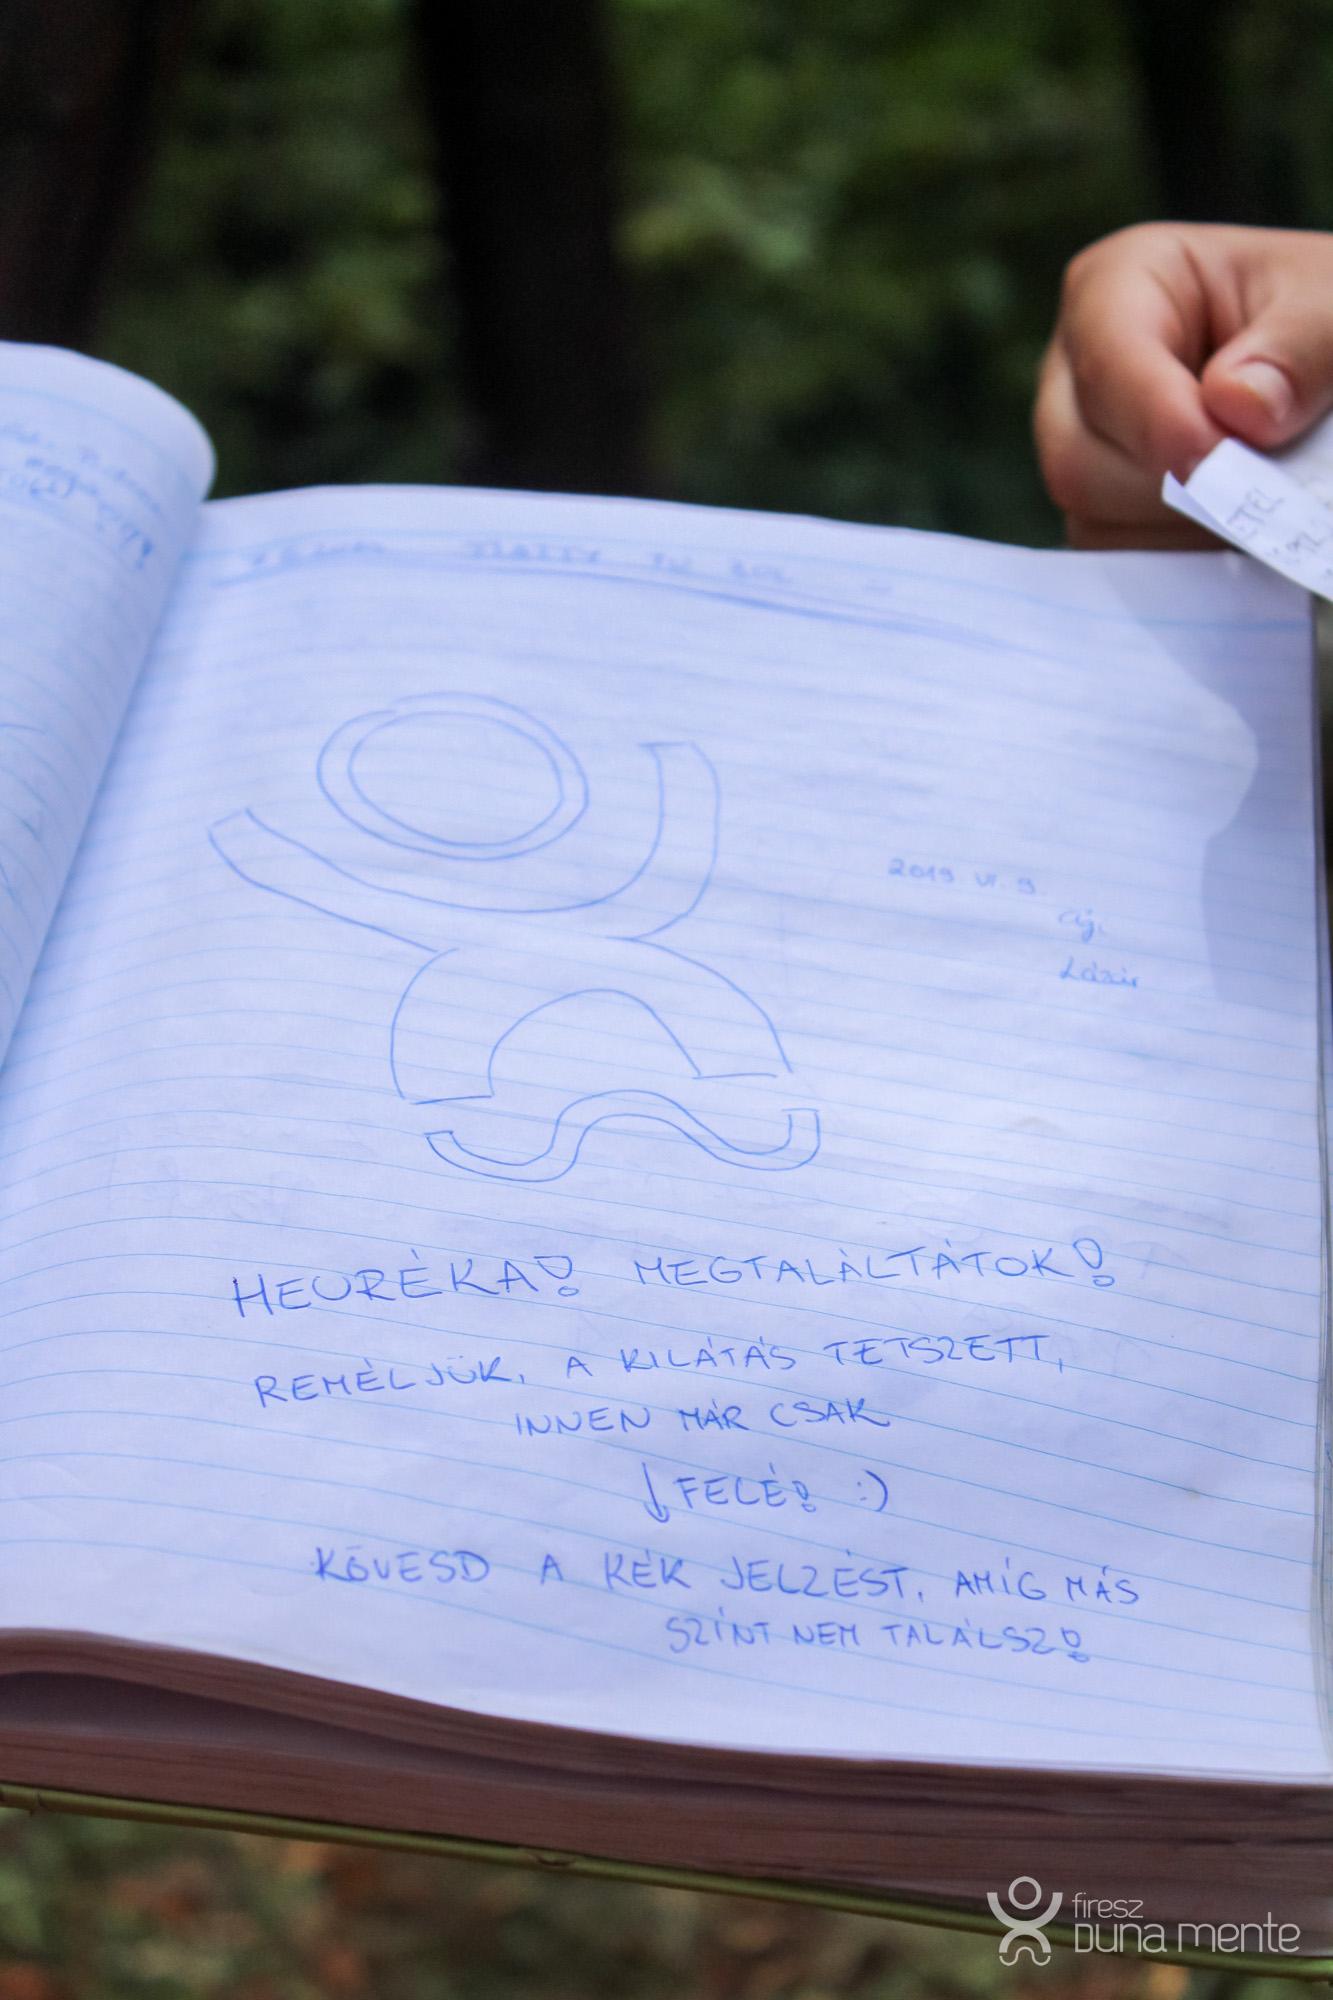 2019 VI. 9.
Lázár
HEURÉKA! MEGTALÁLTÁTOK!
REMÉLJÜK, A KILÁTÁS TETSZETT,
INNEN MÁR CSAK
↓ FELÉ! :)
KÖVESD A KÉK JELZÉST, AMÍG MÁS
SZÍNT NEM TALÁLSZ!
firesz
Duna mente